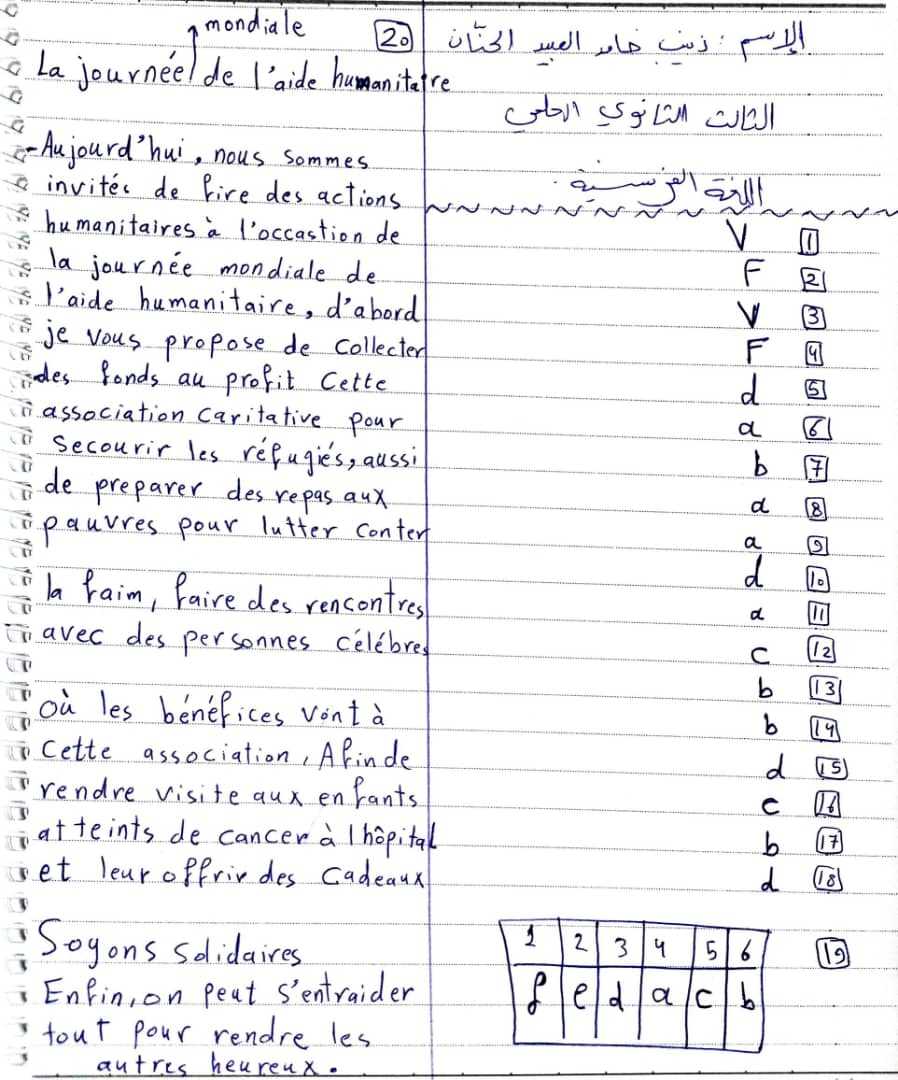 الإسم : زينب حامد العبيد الحنّان
الثالث الثانوي العلمي
اللغة الفرنسية .
V 1
F 2
V 3
F 4
d 5
a 6
b 7
a 8
a 9
d 10
a 11
c 12
b 13
b 14
d 15
c 16
b 17
d 18
19
1 2 3 4 5 6
f e d a c b
20
mondiale
La journée de l'aide humanitaire
-Aujourd'hui, nous sommes
invités de fire des actions
humanitaires à l'occastion de
la journée mondiale de
l'aide humanitaire, d'abord
je vous propose de collecter
des fonds au profit Cette
association caritative pour
secourir les réfugiés, aussi
de preparer des repas aux
pauvres pour lutter conter
la faim, faire des rencontres
avec des personnes célébres
où les bénéfices vont à
Cette association, Afin de
rendre visite aux enfants
atteints de cancer à l hôpital
et leur offrir des Cadeaux
Soyons solidaires
Enfin, on peut s'entraider
tout pour rendre les
autres heureux.